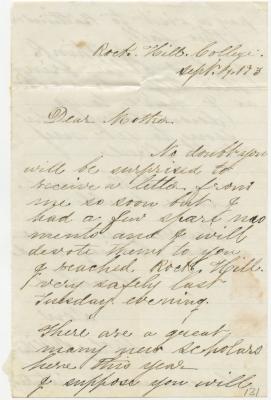 Rock Hill College.
Sept.
Dear Mother.
No doubt you
will be surprised to
receive a letter from
me so soon but I
had a few spare mo
ments and I will
devote them to you
I reached Rock Hill
very safely last
Tuesday evening.
There are a great
many new scholars
here this year
I suppose you will
131